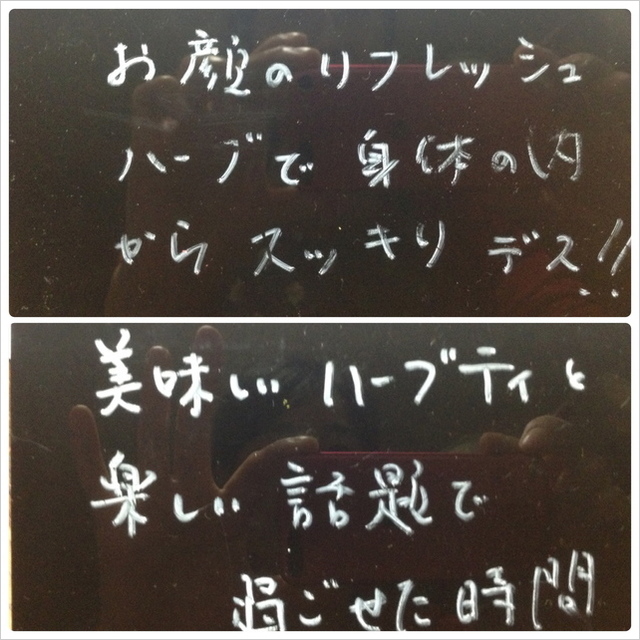 お顔のリフレッシュ
ハーブで身体の内
からスッキリデス!!
美味しいハーブティと
楽しい話題で
過ごせた時間